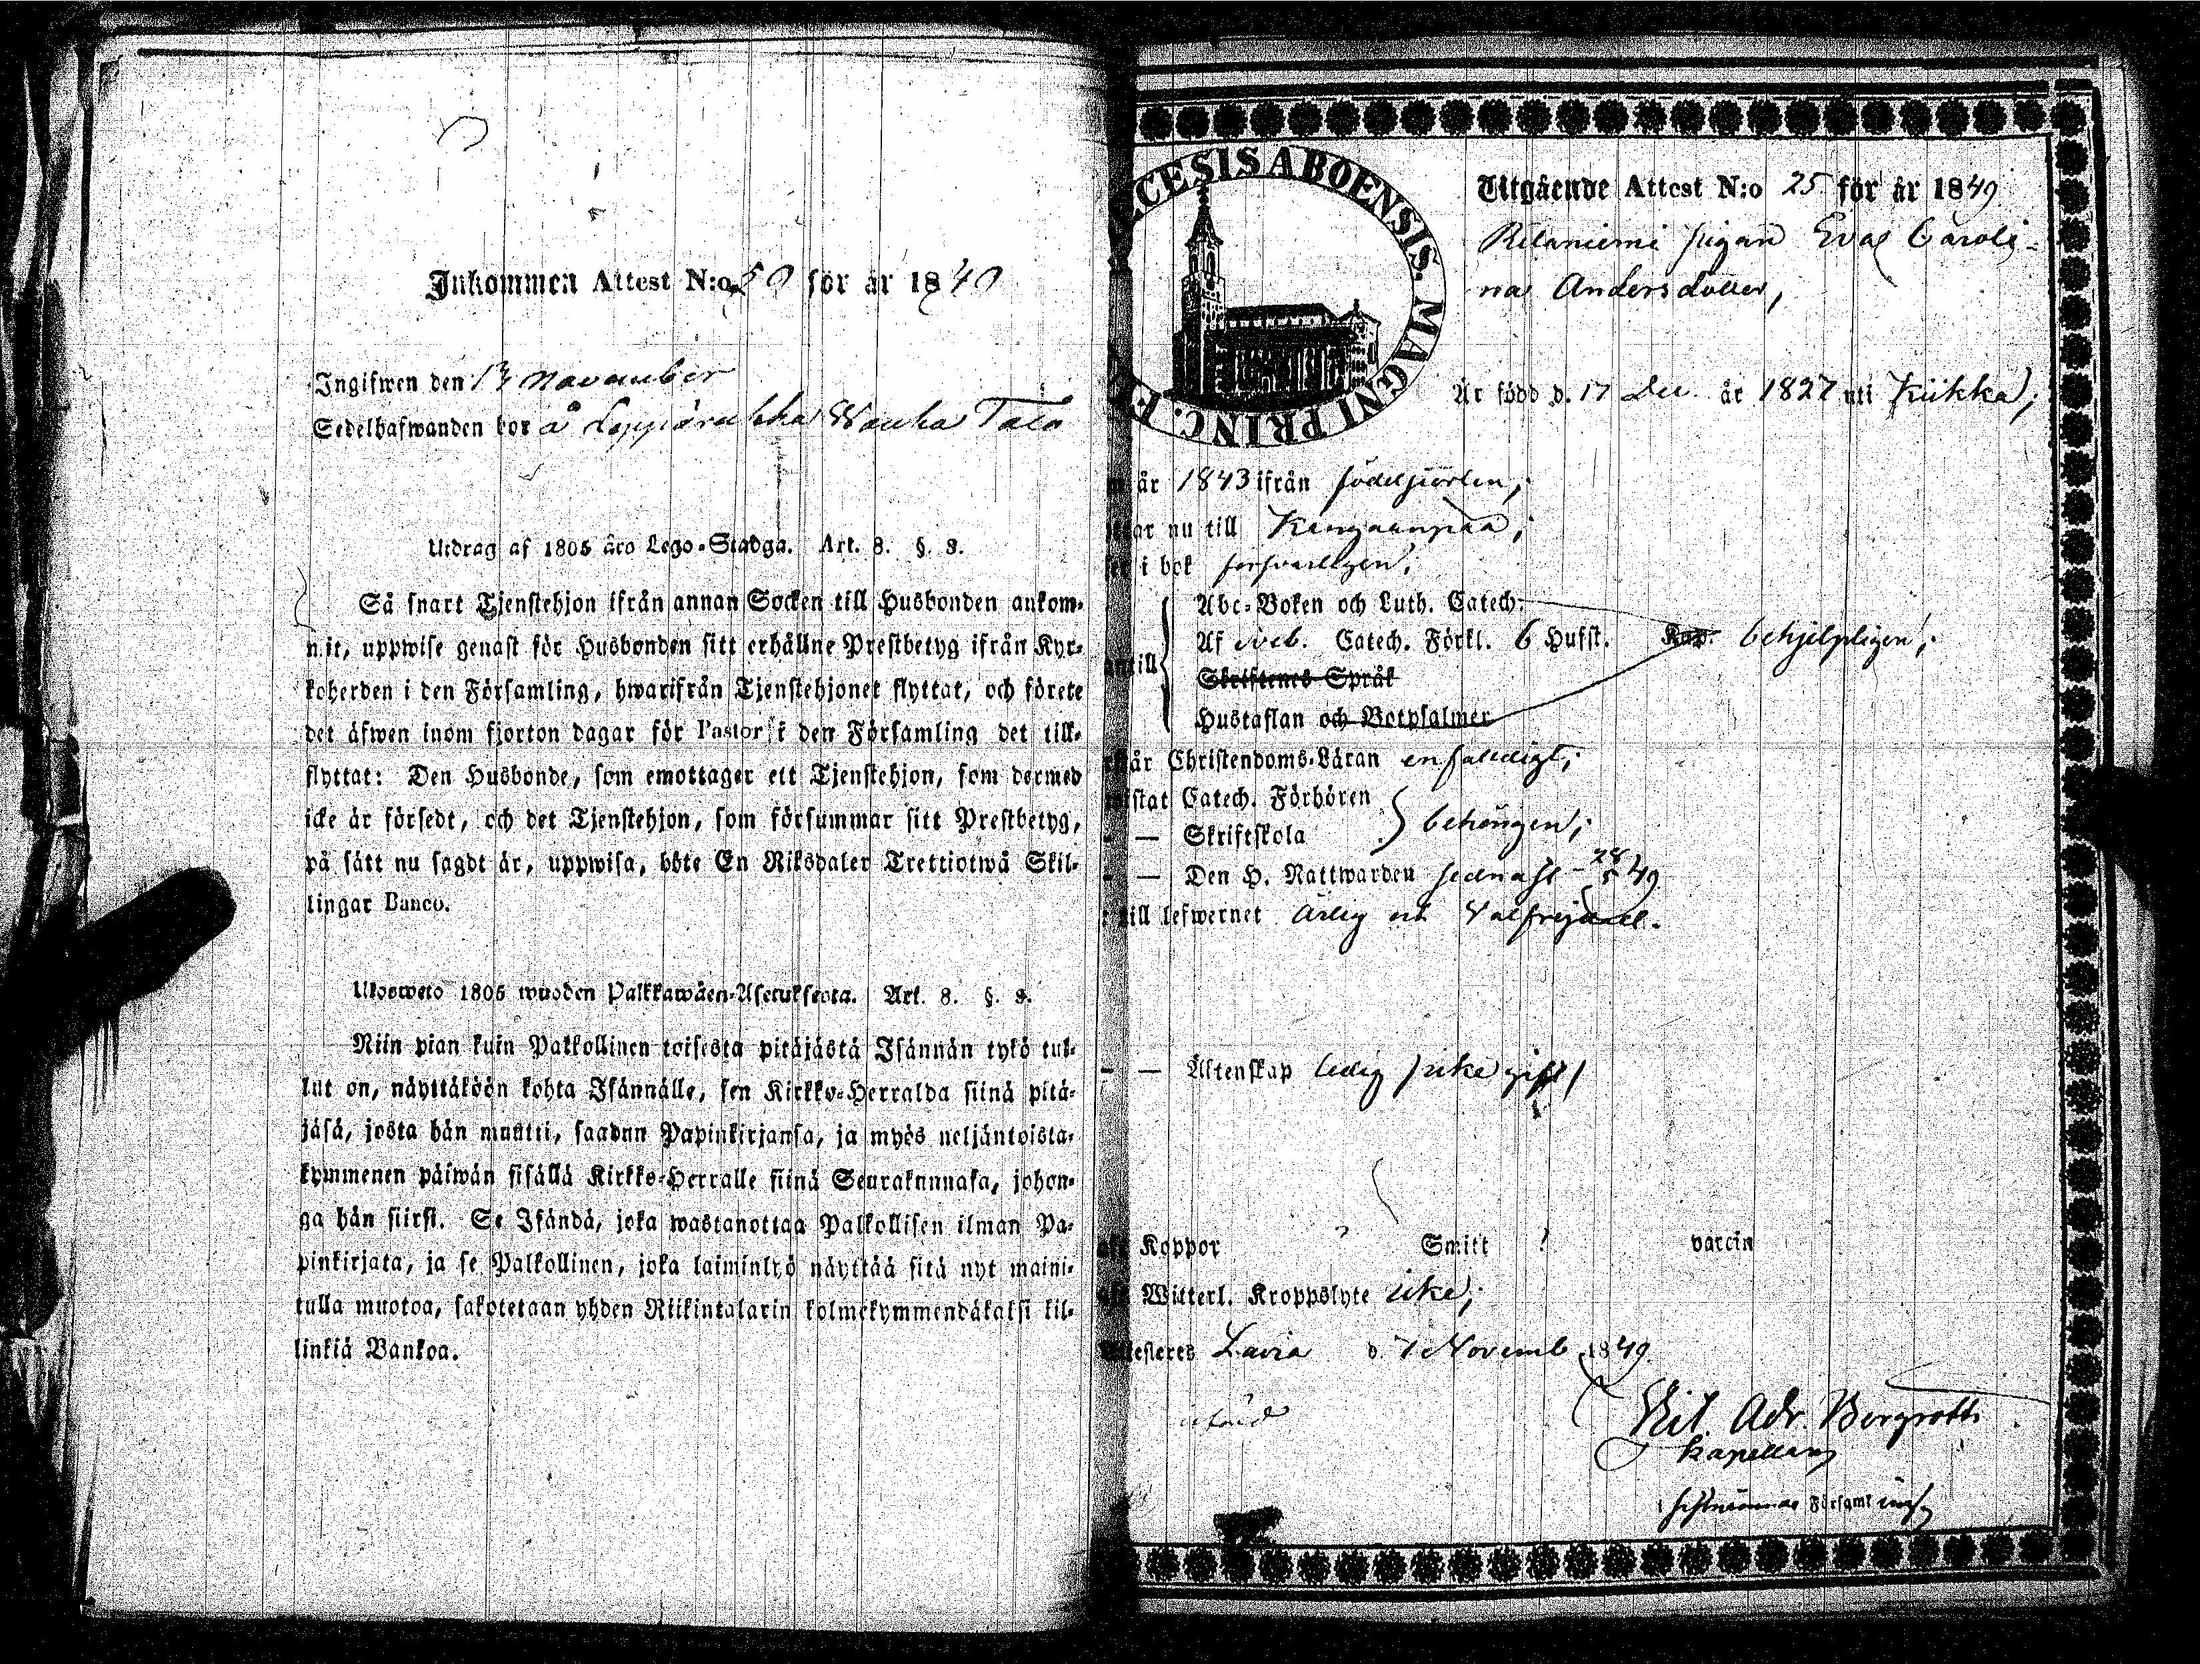 Inkommen Attest N:o 50 för år 1849
Ingifwen den 13 November
Sedelhafwanden bor å Wanha Talo
Utdrag af 1805 års Lego-Stadga. Art. 8. §. 9.
Så snart Tjenstehjon ifrån annan Socken till Husbonden ankom-
mit, uppwise genast för Husbonden sitt erhållne Prestbetyg ifrån Kyr-
koherden i den Församling, hwarifrån Tjenstehjonet flyttat, och förete
det äfwen inom fjorton dagar för Pastor i den Församling det till-
flyttat: Den Husbonde, som emottager ett Tjenstehjon, som dermed
icke är försedt, och det Tjenstehjon, som försummar sitt Prestbetyg,
på sätt nu sagdt är, uppwisa, böte En Riksdaler Trettiotwå Skil-
lingar Banco.
Ulosweto 1805 wuoden Palkkawäen-Asetuksesta. Art. 8. §. 9.
Niin pian kuin Palkollinen toisesta pitäjästä Isännän tykö tul-
lut on, näyttäköön kohta Isännälle, sen Kirkko-Herralda siinä pitä-
jäsä, josta hän muutti, saadun Papinkirjansa, ja myös neljäntoista-
kymmenen päiwän sisällä Kirkko-Herralle siinä Seurakunnasa, johon-
ga hän siirsi. Se Isändä, joka wastanottaa Palkollisen ilman Pa-
pinkirjata, ja se Palkollinen, joka laiminlyö näyttää sitä nyt maini-
tulla muotoa, sakotetaan yhden Riikintalarin kolmekymmendäkaksi kil-
linkiä Bankoa.
CESIS ABOENSIS. MAGNI PRINC. F
Utgående Attest N:o 25 för år 1849
Riilaniemi pigan Eva Caroli-
na Andersdotter,
Är född d. 17 Dec. år 1827 uti Kiikka,
år 1843 ifrån födelseorten,
nu till Kangaanpää,
i bok försvarligen,
Abc-Boken och Luth. Catech.
Af Sveb. Catech. Förkl. 6 Hufst. Kap. behjelpligen,
antill
Skriftenes Språk
Hustaflan och Botpsalmer
år Christendoms-Läran enfaldigt,
istat Catech. Förhören
— Skriftskola behörigen,
— Den H. Nattwarden sednast 28/5 49
till lefwernet Ärlig och Välfrejdad.
— Äktenskap ledig /icke gift/
Koppor ? Smitt ? varein
Witterl. Kroppslyte icke,
Attesteres Lavia d. 7 Novemb 1849.
Adr. Bergroth
Kapellan
Församl